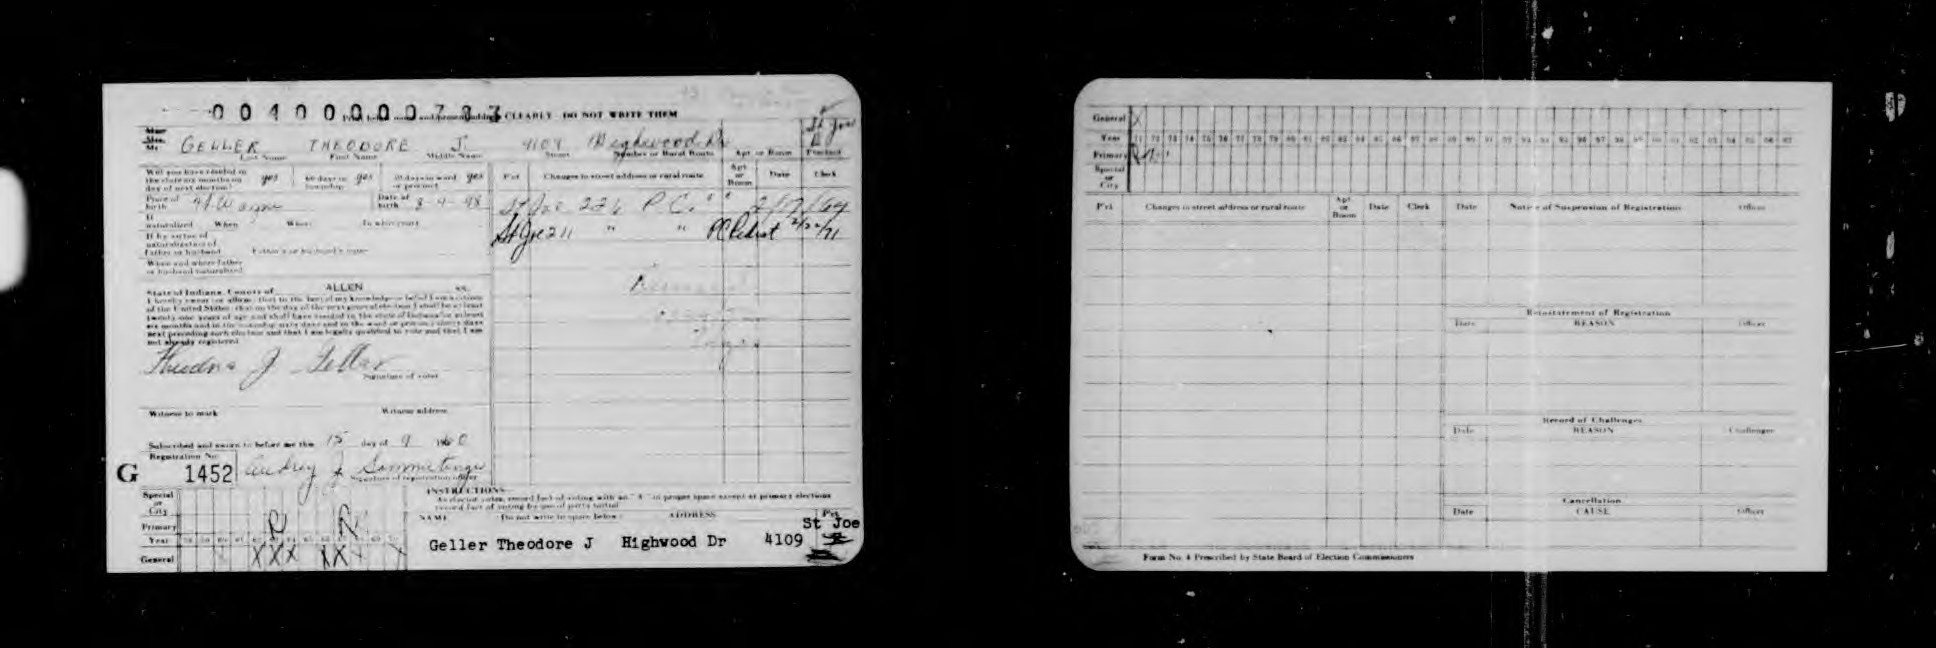 00400000787
CLEARLY - DO NOT WRITE THEM
GELLER THEODORE J. 4109 Highwood Dr
Last Name First Name Middle Name Street Number or Rural Route Apt or Room Precinct
Will you have resided in the state six months on day of next election? yes 60 days in township yes 30 days in ward or precinct yes
Place of birth Ft Wayne Date of birth 8-4-98
If naturalized When Where In what court
If by virtue of naturalization of father or husband Father's or husband's name
When and where father or husband naturalized
Pct Changes in street address or rural route Apt or Room Date Clerk
St Joe 226 P C. " " 2/17/64
St Joe 211 " " PC 2/22/71
State of Indiana, County of ALLEN SS.
I hereby swear (or affirm) that to the best of my knowledge or belief I am a citizen
of the United States; that on the day of the next general election I shall be at least
twenty-one years of age and shall have resided in the state of Indiana for at least
six months and in the township sixty days and in the ward or precinct thirty days
next preceding such election and that I am legally qualified to vote and that I am
not already registered.
Theodore J. Geller
Signature of voter
Witness to mark Witness address
Subscribed and sworn to before me this 15 day of 9 1960
Registration No.
G 1452 Audrey J.
Signature of registration officer
Special or City
Primary R R
Year 58 59 60 61 62 63 64 65 66 67 68 69 70
General X X X X X
INSTRUCTIONS
As elector votes, record fact of voting with an "X" in proper space except at primary elections
record fact of voting by use of party initial
NAME Do not write in space below ADDRESS Pct
St Joe
Geller Theodore J Highwood Dr 4109
General X
Year 71 72 73 74 75 76 77 78 79 80 81 82 83 84 85 86 87 88 89 90 91 92 93 94 95 96 97 98 99 00 01 02 03 04 05 06 07
Primary R
Special or City
Pct Changes in street address or rural route Apt or Room Date Clerk Date Notice of Suspension of Registration Officer
Reinstatement of Registration
Date REASON Officer
Record of Challenges
Date REASON Challenger
Cancellation
Date CAUSE Officer
Form No. 4 Prescribed by State Board of Election Commissioners